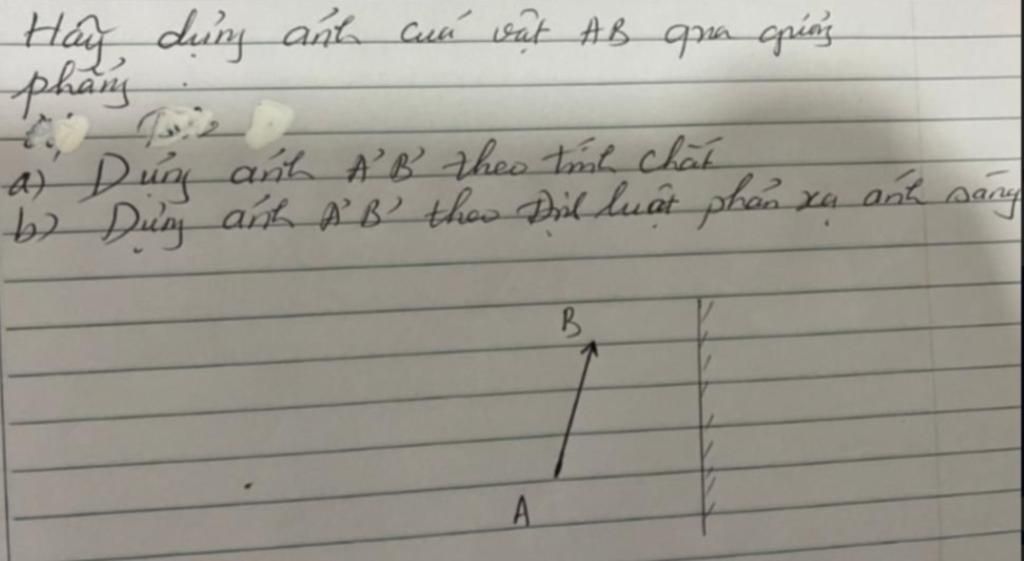 Hãy dựng ảnh của vật AB qua gương
phẳng
a) Dựng ảnh A'B' theo tính chất
b) Dựng ảnh A'B' theo Định luật phản xạ ánh sáng
B
A